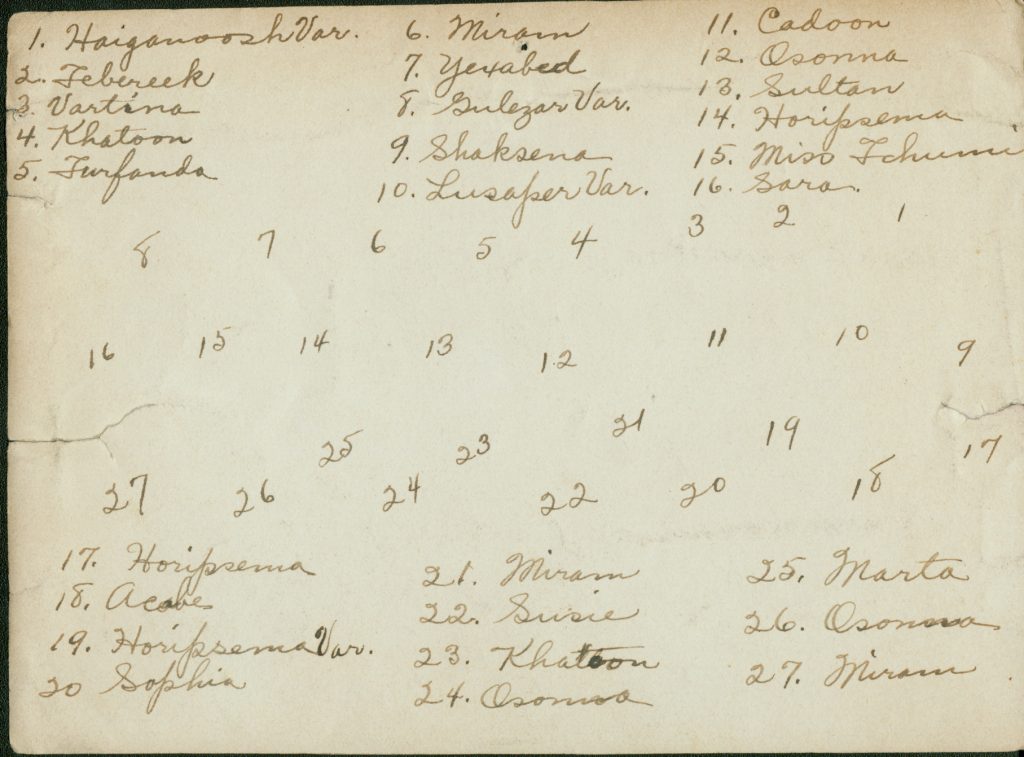 1. Haiganoosh Var.
2. Febereek
3. Vartina
4. Khatoon
5. Furfanda
6. Miram
7. Yexabed
8. Gulezar Var.
9. Shaksena
10. Lusaper Var.
11. Cadoon
12. Osonna
13. Sultan
14. Horipsema
15. Miss Tchumi
16. Sara.
8 7 6 5 4 3 2 1
16 15 14 13 12 11 10 9
25 23 21 19 17
27 26 24 22 20 18
17. Horipsema
18. Acabe
19. Horipsema Var.
20 Sophia
21. Miram
22. Susie
23. Khatoon
24. Osonna
25. Marta
26. Osonna
27. Miram